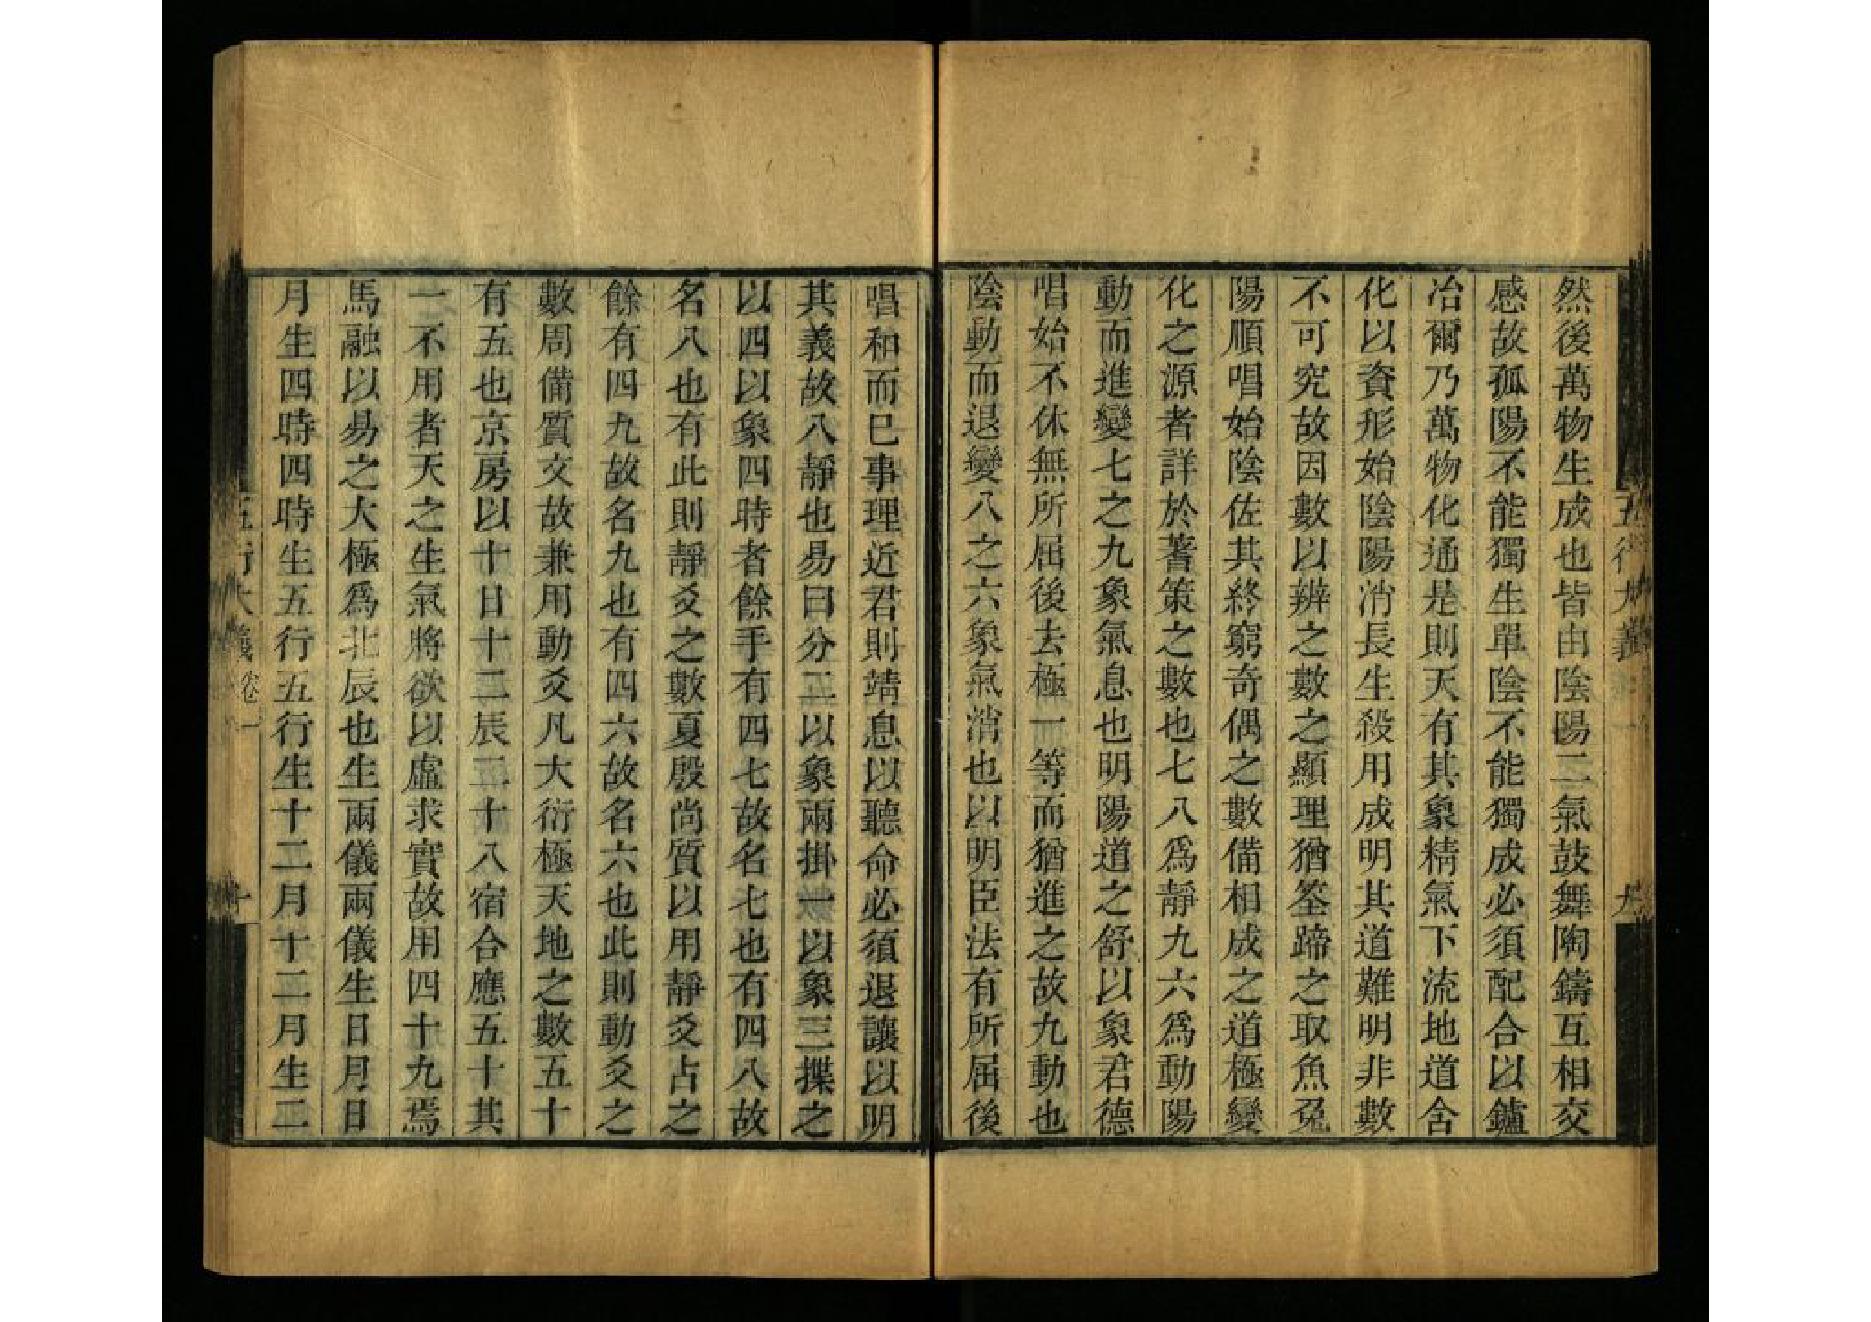 然後萬物生成也皆由陰陽二氣鼓舞陶鑄互相交
感故孤陽不能獨生單陰不能獨成必須配合以鑪
冶爾乃萬物化通是則天有其象精氣下流地道含
化以資形始陰陽消長生殺用成明其道難明非數
不可究故因數以辨之數之顯理猶筌蹄之取魚兔
陽順唱始陰佐其終窮奇偶之數備相成之道極變
化之源者詳於蓍策之數也七八爲靜九六爲動陽
動而進變七之九象氣息也明陽道之舒以象君德
唱始不休無所屈後去極一等而猶進之故九動也
陰動而退變八之六象氣消也以明臣法有所屈後
唱和而巳事理近君則靖息以聽命必須退讓以明
其義故八靜也易曰分二以象兩掛一以象三揲之
以四以象四時者餘手有四七故名七也有四八故
名八也有此則靜爻之數夏殷尚質以用靜爻占之
餘有四九故名九也有四六故名六也此則動爻之
數周備質文故兼用動爻凡大衍極天地之數五十
有五也京房以十日十二辰二十八宿合應五十其
一不用者天之生氣將欲以虛求實故用四十九焉
馬融以易之大極爲北辰也生兩儀兩儀生日月日
月生四時四時生五行五行生十二月十二月生二
五行大義卷一 十